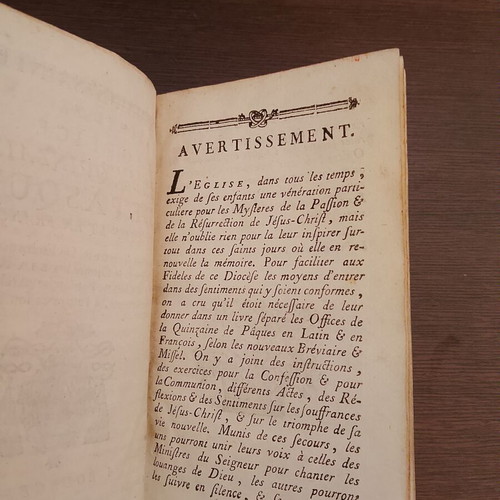 AVERTISSEMENT.
L'EGLISE, dans tous les temps,
exige de ſes enfants une vénération parti-
culiere pour les Myſteres de la Paſſion &
de la Réſurrection de Jéſus-Chriſt, mais
elle n'oublie rien pour la leur inſpirer ſur-
tout dans ces ſaints jours où elle en re-
nouvelle la mémoire. Pour faciliter aux
Fideles de ce Diocèſe les moyens d'entrer
dans des ſentiments qui y ſoient conformes,
on a cru qu'il étoit néceſſaire de leur
donner dans un livre ſéparé les Offices de
la Quinzaine de Pâques en Latin & en
François, ſelon les nouveaux Bréviaire &
Miſſel. On y a joint des inſtructions,
des exercices pour la Confeſſion & pour
la Communion, différents Actes, des Ré-
flexions & des Sentiments ſur les ſouffrances
de Jéſus-Chriſt, & ſur le triomphe de ſa
vie nouvelle. Munis de ces ſecours, les
uns pourront unir leurs voix à celles des
Miniſtres du Seigneur pour chanter les
louanges de Dieu, les autres pourront
les ſuivre en ſilence, &